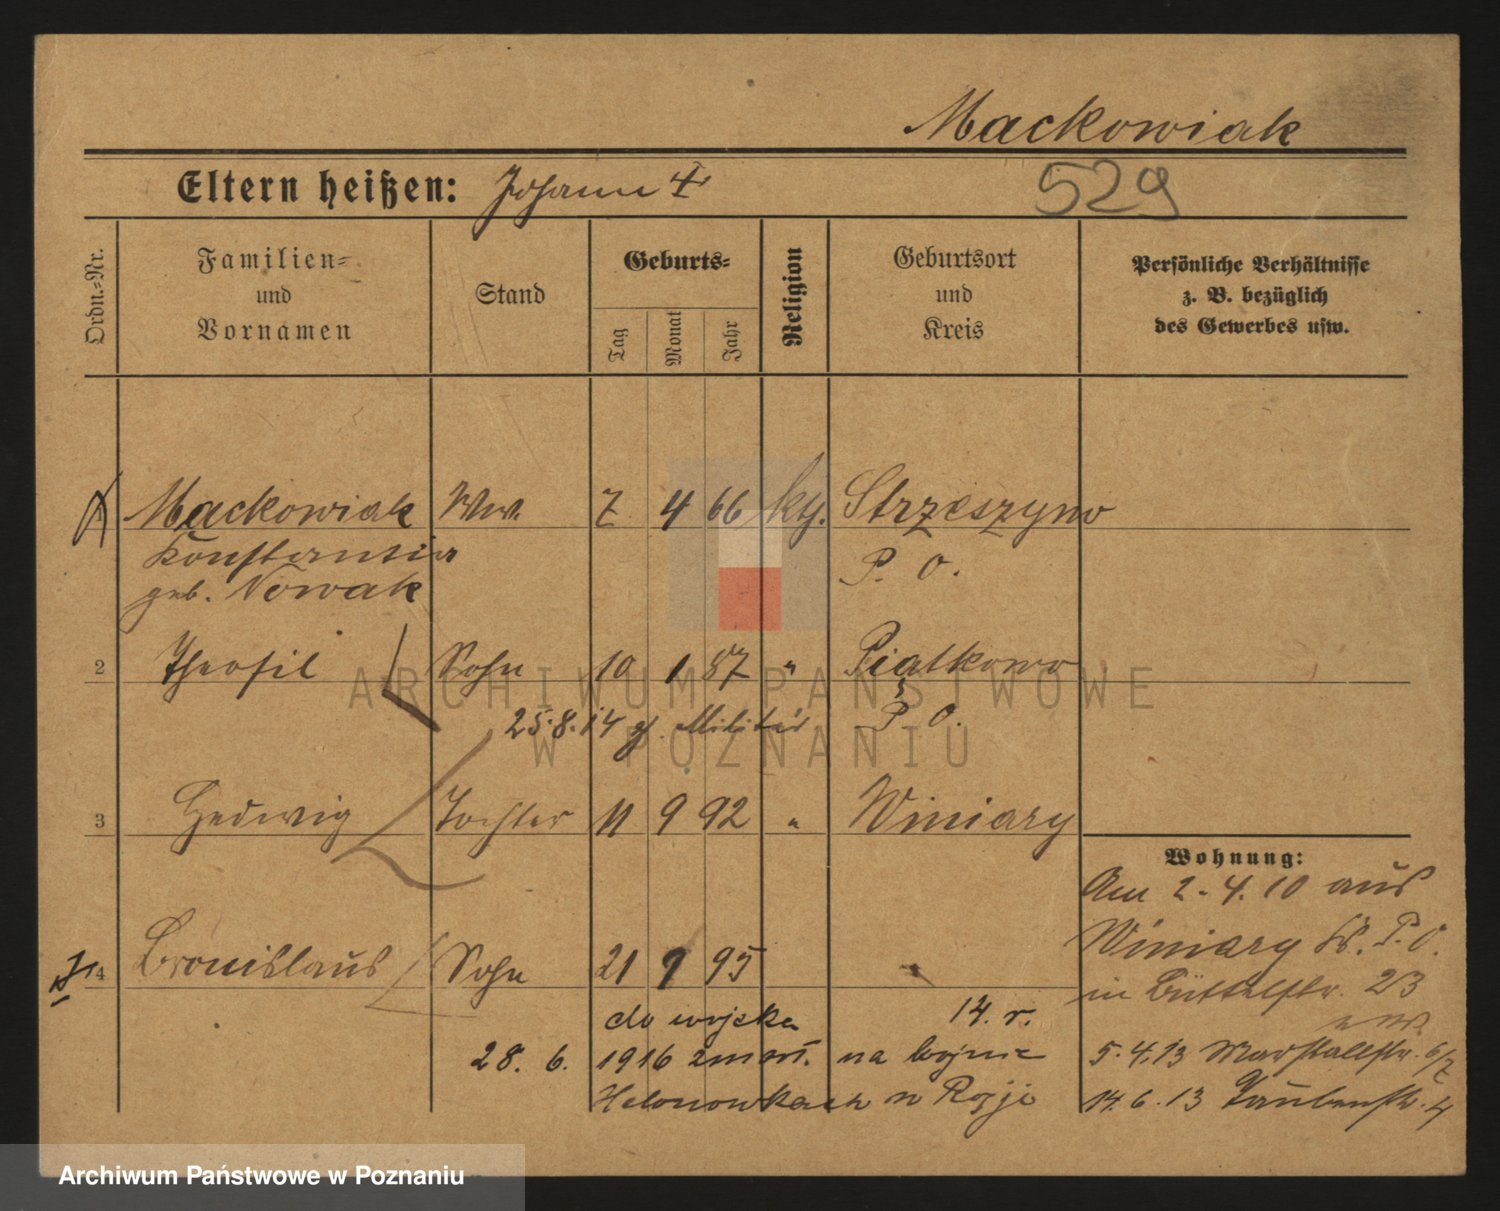 Mackowiak
Eltern heißen: Johann †
529
Ordn.-Nr.
Familien- und Vornamen
Stand
Geburts-
Tag
Monat
Jahr
Religion
Geburtsort und Kreis
Persönliche Verhältnisse z. B. bezüglich des Gewerbes usw.
Mackowiak Ww. 7 4 66 Strzeszyno
Konstantia P. O.
geb. Nowak
2 Theofil Sohn 10 1 87 " Piatkowo
P. O.
25.8.14 z. Militär
3 Hedwig Tochter 11 9 92 " Winiary
4 Bronislaus Sohn 21 9 95
do wojska 14. r.
28. 6. 1916 na wojnie
w Rosji
Wohnung:
Am 2.4.10 aus
Winiary Kr. P. O.
in Büttelstr. 23
5.4.13 Marstallstr. 6/7
14.6.13 Taubenstr. 4
ARCHIWUM PAŃSTWOWE
W POZNANIU
Archiwum Państwowe w Poznaniu